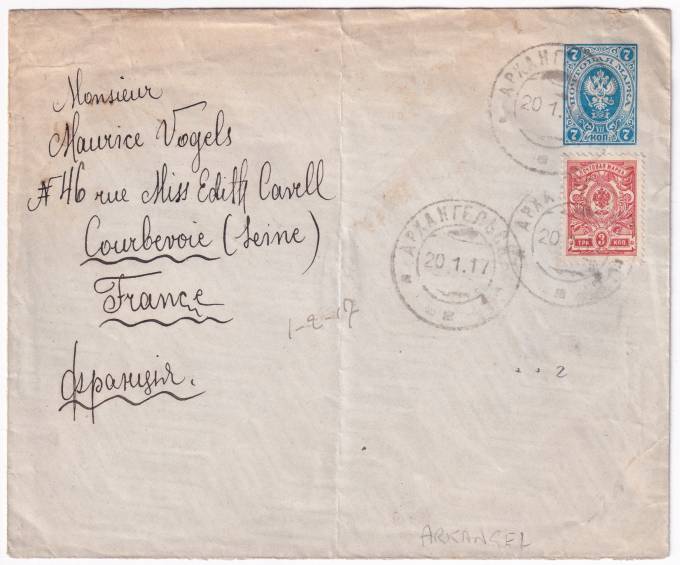 Monsieur
Maurice Vogels
№ 46 rue Miss Edith Cavell
Courbevoie (Seine)
France
Франція.
1-2-17
АРХАНГЕЛЬСК
20.1.17
АРХАНГЕ
20.1.
АРХА
20.
7 7
ПОЧТОВАЯ МАРКА
7 КОП. 7
ПОЧТОВАЯ МАРКА
ТРИ 3 КОП.
2
ARKANGEL